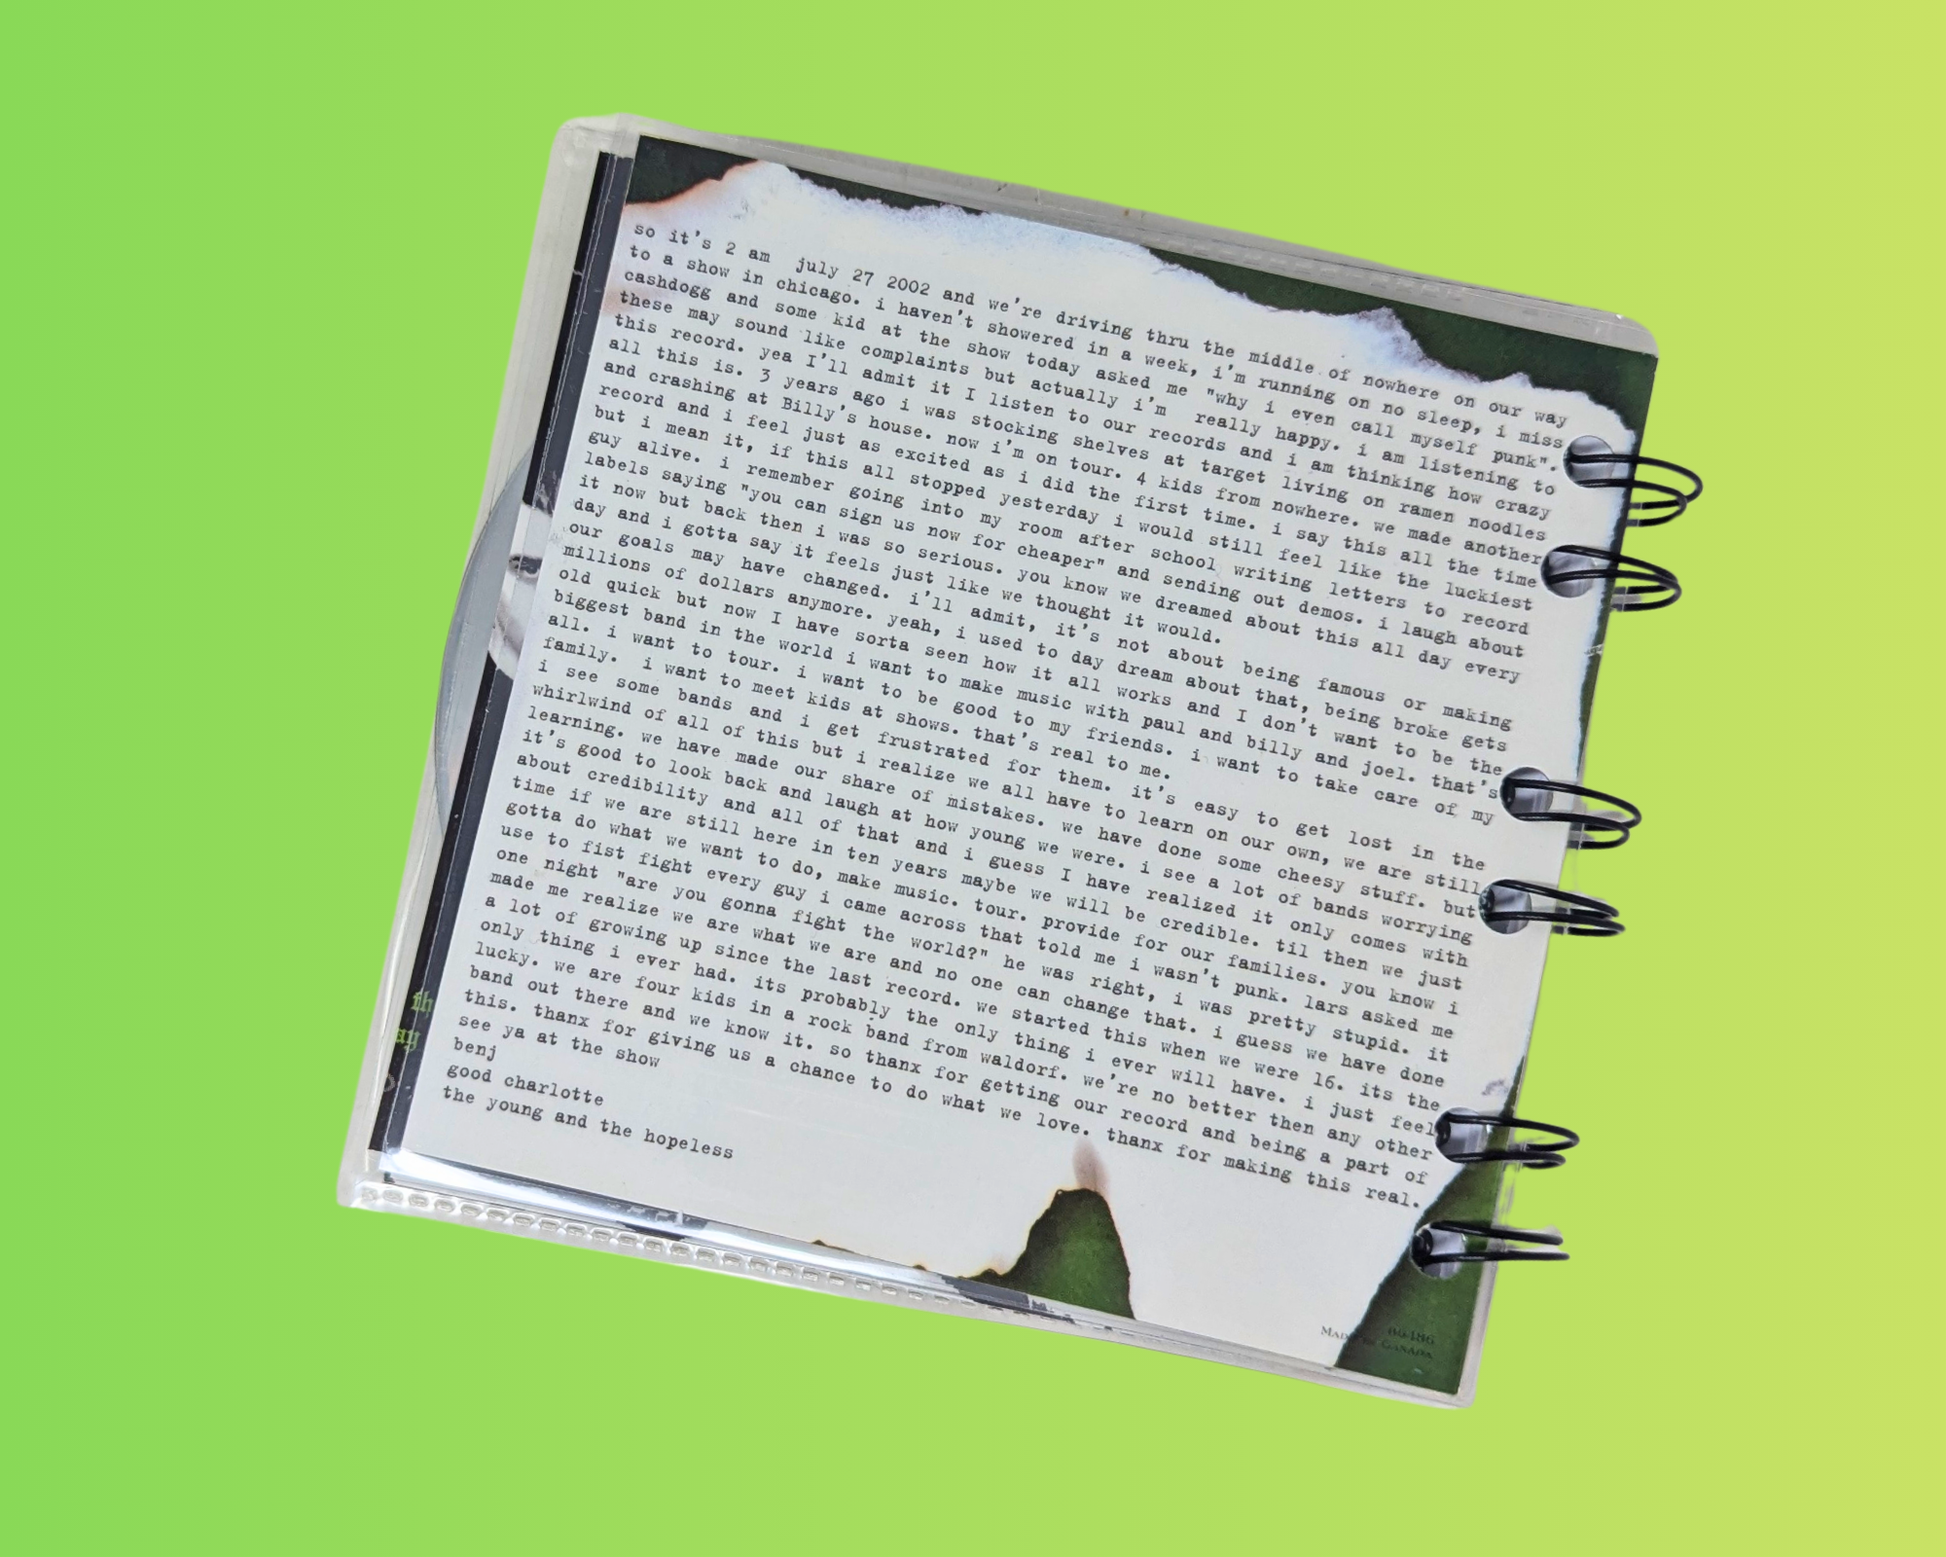 so it's 2 am july 27 2002 and we're driving thru the middle of nowhere on our way
to a show in chicago. i haven't showered in a week, i'm running on no sleep, i miss
cashdogg and some kid at the show today asked me "why i even call myself punk".
these may sound like complaints but actually i'm really happy. i am listening to
this record. yea I'll admit it I listen to our records and i am thinking how crazy
all this is. 3 years ago i was stocking shelves at target living on ramen noodles
and crashing at Billy's house. now i'm on tour. 4 kids from nowhere. we made another
record and i feel just as excited as i did the first time. i say this all the time
but i mean it, if this all stopped yesterday i would still feel like the luckiest
guy alive. i remember going into my room after school writing letters to record
labels saying "you can sign us now for cheaper" and sending out demos. i laugh about
it now but back then i was so serious. you know we dreamed about this all day every
day and i gotta say it feels just like we thought it would.
our goals may have changed. i'll admit, it's not about being famous or making
millions of dollars anymore. yeah, i used to day dream about that, being broke gets
old quick but now I have sorta seen how it all works and I don't want to be the
biggest band in the world i want to make music with paul and billy and joel. that's
all. i want to tour. i want to be good to my friends. i want to take care of my
family. i want to meet kids at shows. that's real to me.
i see some bands and i get frustrated for them. it's easy to get lost in the
whirlwind of all of this but i realize we all have to learn on our own, we are still
learning. we have made our share of mistakes. we have done some cheesy stuff. but
it's good to look back and laugh at how young we were. i see a lot of bands worrying
about credibility and all of that and i guess I have realized it only comes with
time if we are still here in ten years maybe we will be credible. til then we just
gotta do what we want to do, make music. tour. provide for our families. you know i
use to fist fight every guy i came across that told me i wasn't punk. lars asked me
one night "are you gonna fight the world?" he was right, i was pretty stupid. it
made me realize we are what we are and no one can change that. i guess we have done
a lot of growing up since the last record. we started this when we were 16. its the
only thing i ever had. its probably the only thing i ever will have. i just feel
lucky. we are four kids in a rock band from waldorf. we're no better then any other
band out there and we know it. so thanx for getting our record and being a part of
this. thanx for giving us a chance to do what we love. thanx for making this real.
see ya at the show
benj
good charlotte
the young and the hopeless